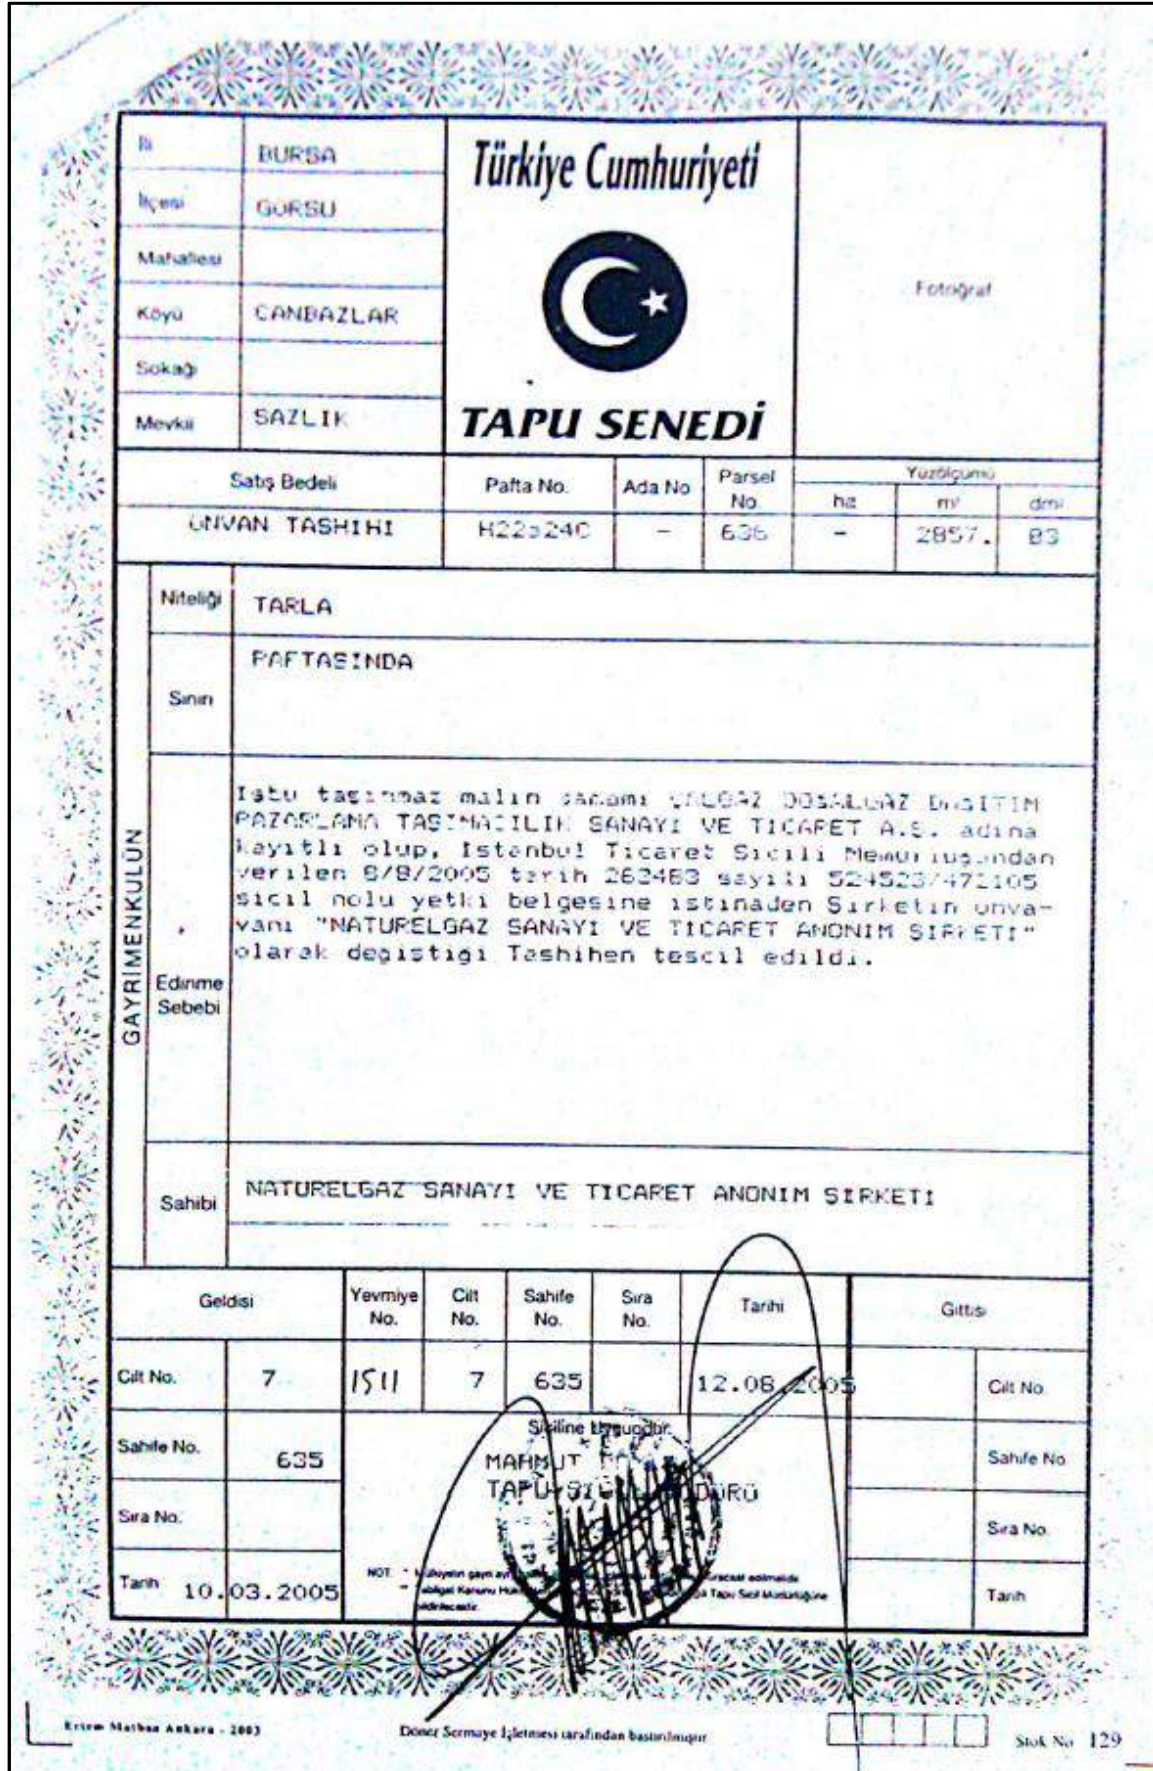 İli BURSA
İlçesi GURSU
Mahallesi
Köyü CANBAZLAR
Sokağı
Mevkii SAZLIK
Türkiye Cumhuriyeti
TAPU SENEDİ
Fotoğraf
Satış Bedeli Pafta No. Ada No Parsel No. Yüzölçümü ha m² dm²
UNVAN TASHIHI - 636 - 2857. 83
GAYRİMENKULÜN
Niteliği TARLA
Sınırı PAFTASINDA
Edinme Sebebi
Isbu tasınmaz malın tamamı DOGALGAZ DAGITIM
PAZARLAMA TASIMACILIK SANAYI VE TICARET A.S. adına
kayıtlı olup, Istanbul Ticaret Sicili Memurlugundan
verilen 8/8/2005 tarih 262483 sayılı 524523/472105
sicil nolu yetki belgesine istinaden Sirketin unva-
vanı "NATURELGAZ SANAYI VE TICARET ANONIM SIRKETI"
olarak degistigi Tashihen tescil edildi.
Sahibi NATURELGAZ SANAYI VE TICARET ANONIM SIRKETI
Geldisi Yevmiye No. Cilt No. Sahife No. Sıra No. Tarihi Gittisi
Cilt No. 7 1511 7 635 12.08.2005 Cilt No.
Sahife No. 635 Sahife No.
Siciline Uygundur.
MAHMUT
TAPU SICIL MÜDÜRÜ
Sıra No. Sıra No.
Tarih 10.03.2005 Tarih
NOT
Tapu Sicil Müdürlüğüne
Ertem Matbaa Ankara - 2003
Döner Sermaye İşletmesi tarafından bastırılmıştır
Stok No 129